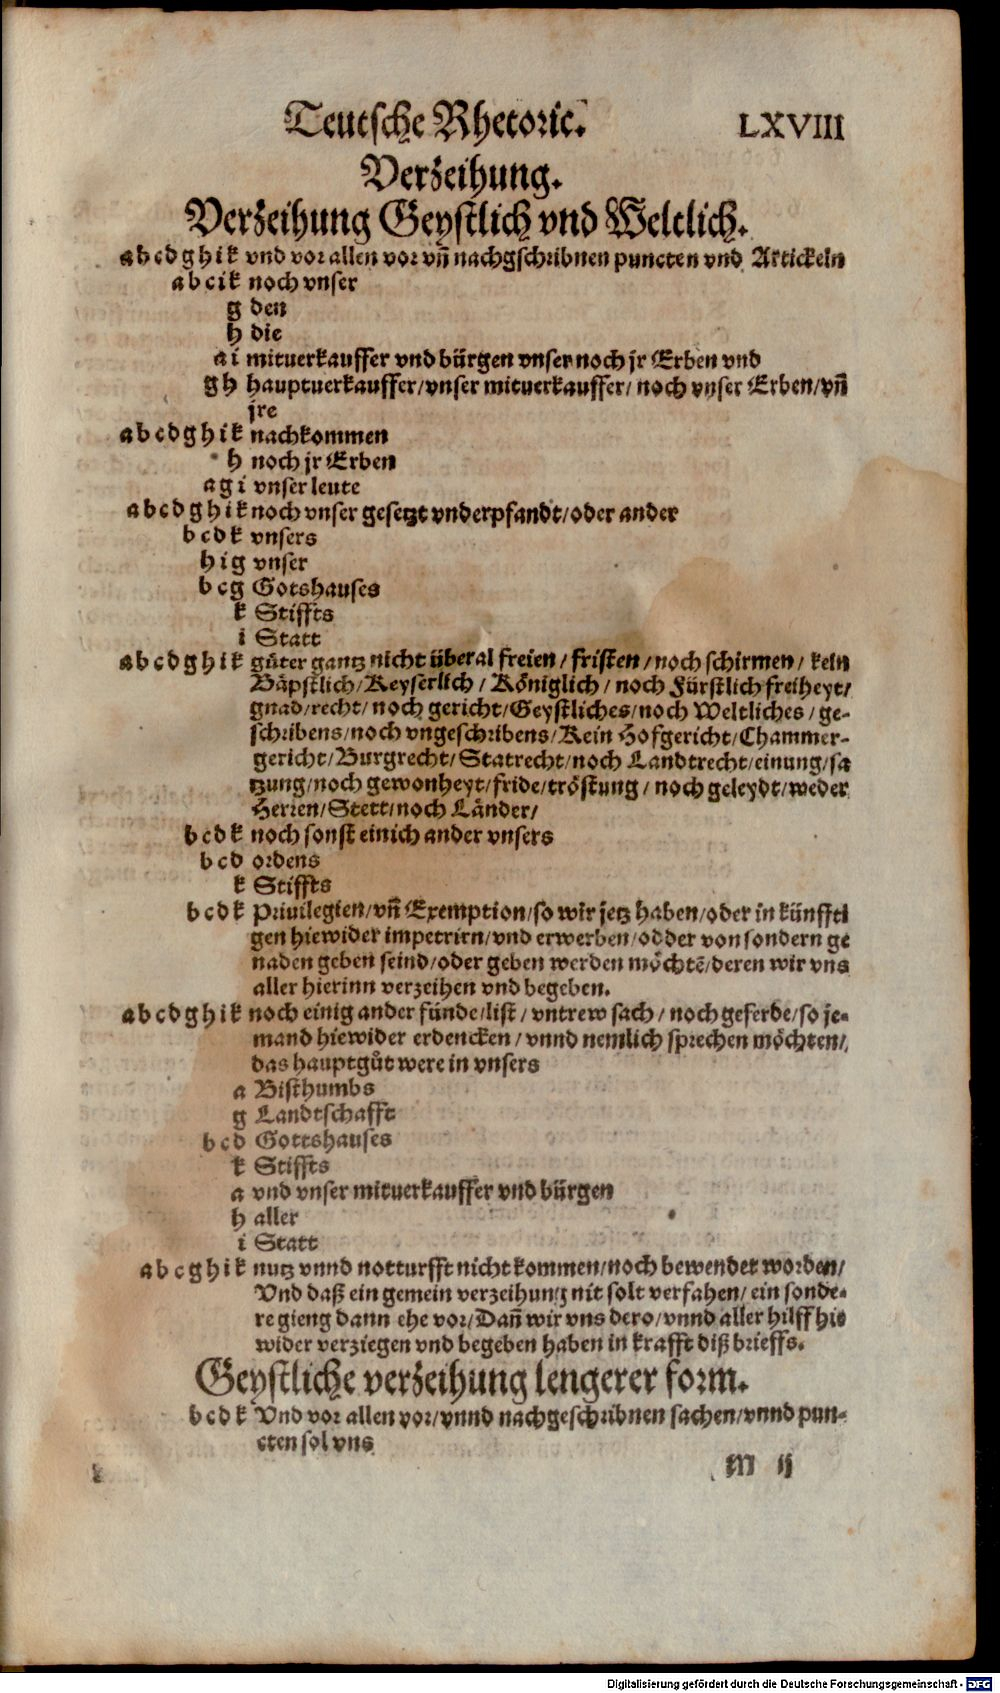 Teutsche Rhetoric. LXVIII
Verzeihung.
Verzeihung Geystlich vnd Weltlich.
a b c d g h i k vnd vor allen vor vñ nachgschribnen puncten vnd Artickeln
a b c i k noch vnser
g den
h die
a i mituerkauffer vnd bürgen vnser noch jr Erben vnd
g h hauptuerkauffer/vnser mituerkauffer/ noch vnser Erben/vñ
jre
a b c d g h i k nachkommen
h noch jr Erben
a g i vnser leute
a b c d g h i k noch vnser gesetzt vnderpfandt/oder ander
b c d k vnsers
h i g vnser
b c g Gotshauses
k Stiffts
i Statt
a b c d g h i k gůter gantz nicht überal freien/ fristen/noch schirmen/ kein
Bäpstlich/Keyserlich/ Königlich/ noch Fürstlich freiheyt/
gnad/recht/ noch gericht/Geystliches/noch Weltliches/ ge-
schribens/noch vngeschribens/Kein Hofgericht/Chammer-
gericht/Burgrecht/Statrecht/noch Landtrecht/einung/sa
tzung/noch gewonheyt/fride/tröstung/ noch geleydt/weder
Herren/Stett/noch Länder/
b c d k noch sonst einich ander vnsers
b c d ordens
k Stiffts
b c d k Priuilegien/vñ Exemption/so wir jetz haben/oder in künffti
gen hiewider impetrirn/vnd erwerben/odder von sondern ge
naden geben seind/oder geben werden möchtē/deren wir vns
aller hierinn verzeihen vnd begeben.
a b c d g h i k noch einig ander fünde/list/ vntrew sach/ noch geferde/so je-
mand hiewider erdencken/ vnnd nemlich sprechen möchten/
das hauptgůt were in vnsers
a Bisthumbs
g Landtschafft
b c d Gottshauses
k Stiffts
a vnd vnser mituerkauffer vnd bürgen
h aller
i Statt
a b c g h i k nutz vnnd notturfft nicht kommen/noch bewendet worden/
Vnd daß ein gemein verzeihung nit solt verfahen/ ein sonde-
re gieng dann ehe vor/Dañ wir vns dero/vnnd aller hilff hie
wider verziegen vnd begeben haben in krafft diß brieffs.
Geystliche verzeihung lengerer form.
b c d k Vnd vor allen vor/vnnd nachgeschribnen sachen/vnnd pun-
cten sol vns
M ij
Digitalisierung gefördert durch die Deutsche Forschungsgemeinschaft - DFG